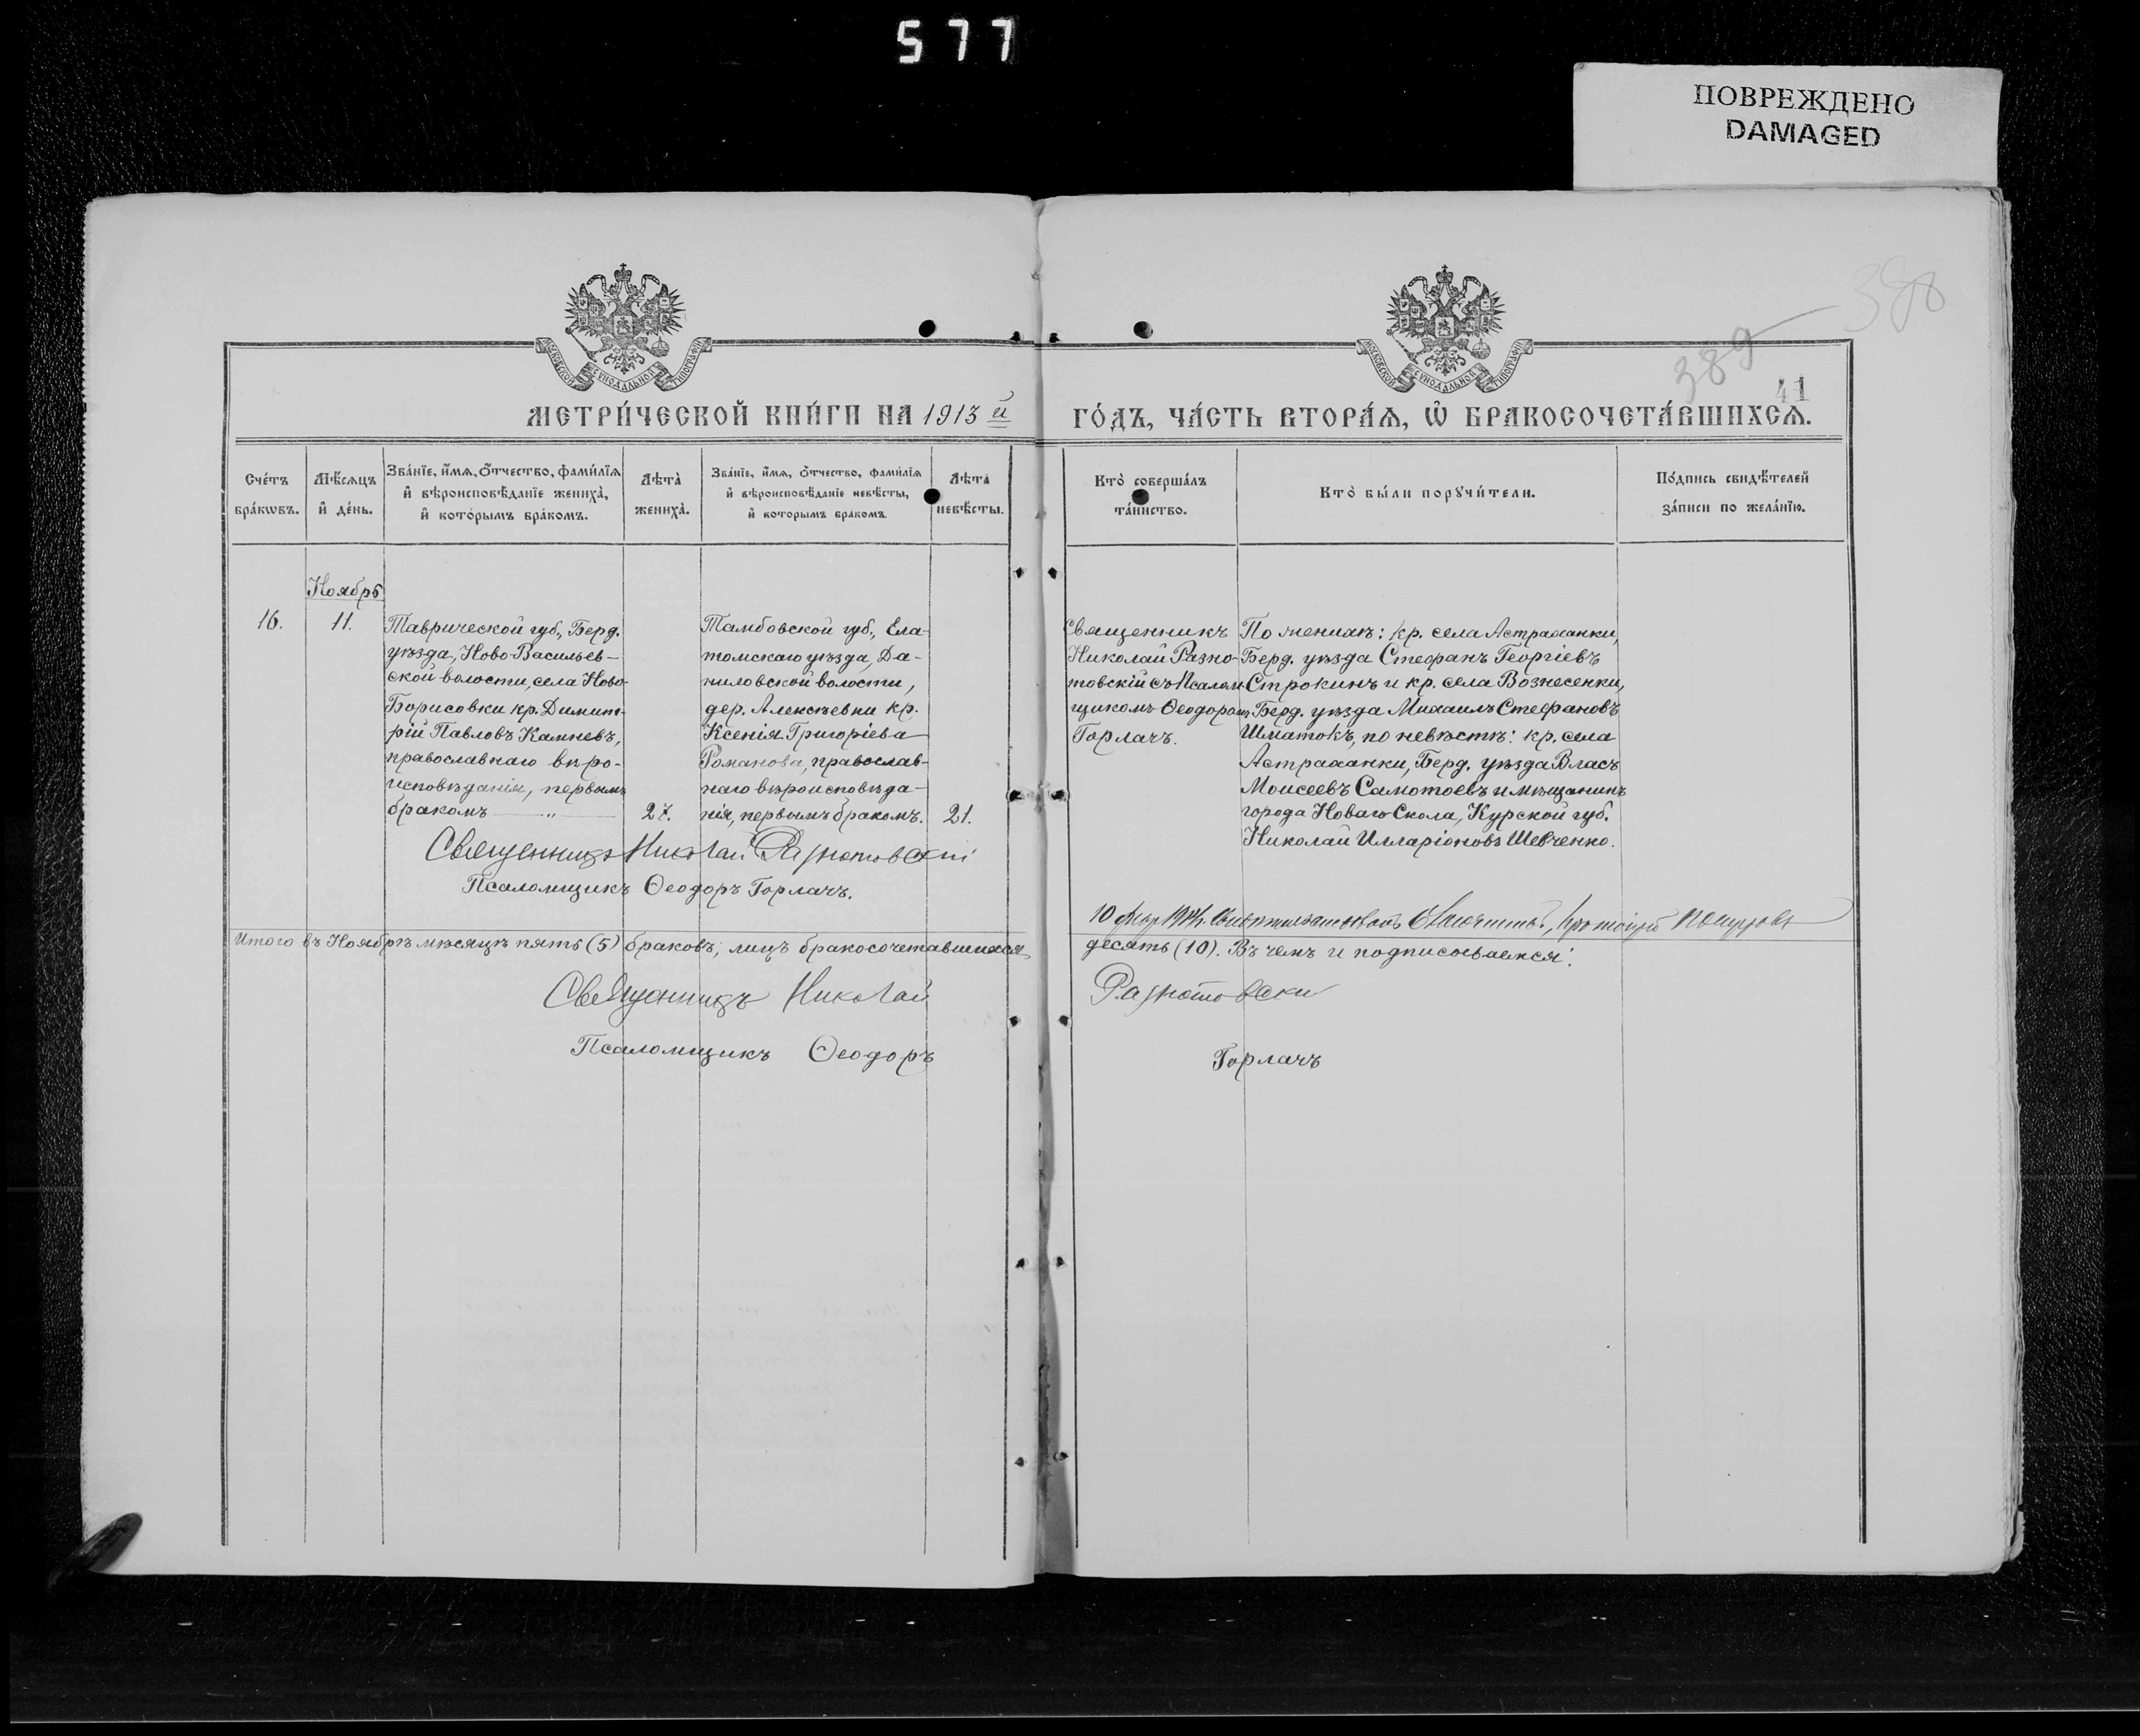 577
ПОВРЕЖДЕНО
DAMAGED
388
389
41
МОСКОВСКОЙ СѴНОДАЛЬНОЙ ТИПОГРАФІИ
МОСКОВСКОЙ СѴНОДАЛЬНОЙ ТИПОГРАФІИ
МЕТРИ́ЧЕСКОЙ КНИ́ГИ НА 1913 й
ГО́ДЪ, ЧА́СТЬ ВТОРА́Ѧ, Ѡ҆ БРАКОСОЧЕТА́ВШИХСѦ.
Сче́тъ
бра́кѡвъ.
Мѣ́сѧцъ
и҆ де́нь.
Зва́нїе, и҆́мѧ, о҆́тчество, фами́лїѧ
и҆ вѣроисповѣ́данїе жениха̀,
и҆ кото́рымъ бра́комъ.
Лѣ́та̀
жениха̀.
Зва́нїе, и҆́мѧ, о҆́тчество, фами́лїѧ
и҆ вѣроисповѣ́данїе невѣ́сты,
и҆ кото́рымъ бра́комъ.
Лѣ́та̀
невѣ́сты.
Кто̀ соверша́лъ
та́инство.
Кто̀ бы́ли порꙋчи́тели.
По́дпись свидѣ́телей
за́писи по жела́нїю.
Ноябрь
16.
11.
Таврической губ., Берд.
уѣзда, Ново-Васильев-
ской волости, села Ново-
Борисовки кр. Димит-
рій Павловъ Камневъ,
православнаго вѣро-
исповѣданія, первымъ
бракомъ — „ —
27.
Тамбовской губ., Ела-
томскаго уѣзда, Да-
ниловской волости,
дер. Алексѣевки кр.
Ксенія Григоріева
Романова, православ-
наго вѣроисповѣда-
нія, первымъ бракомъ.
21.
Священникъ
Николай Разно-
товскій съ Псалом-
щикомъ Ѳеодоромъ
Горлачъ.
По женихѣ: кр. села Астраханки,
Берд. уѣзда Стефанъ Георгіевъ
Строкинъ и кр. села Вознесенки,
Берд. уѣзда Михаилъ Стефановъ
Шматокъ, по невѣстѣ: кр. села
Астраханки, Берд. уѣзда Власъ
Моисеевъ Самотоевъ и мѣщанинъ
города Новаго Скола, Курской губ.
Николай Илларіоновъ Шевченко.
Священникъ Николай Разнотовскій
Псаломщикъ Ѳеодоръ Горлачъ.
Итого въ Ноябрѣ мѣсяцѣ пять (5) браковъ; лицъ бракосочетавшихся
десять (10). Въ чемъ и подписываемся:
Священникъ Николай
Разнотовскій
Псаломщикъ Ѳеодоръ
Горлачъ